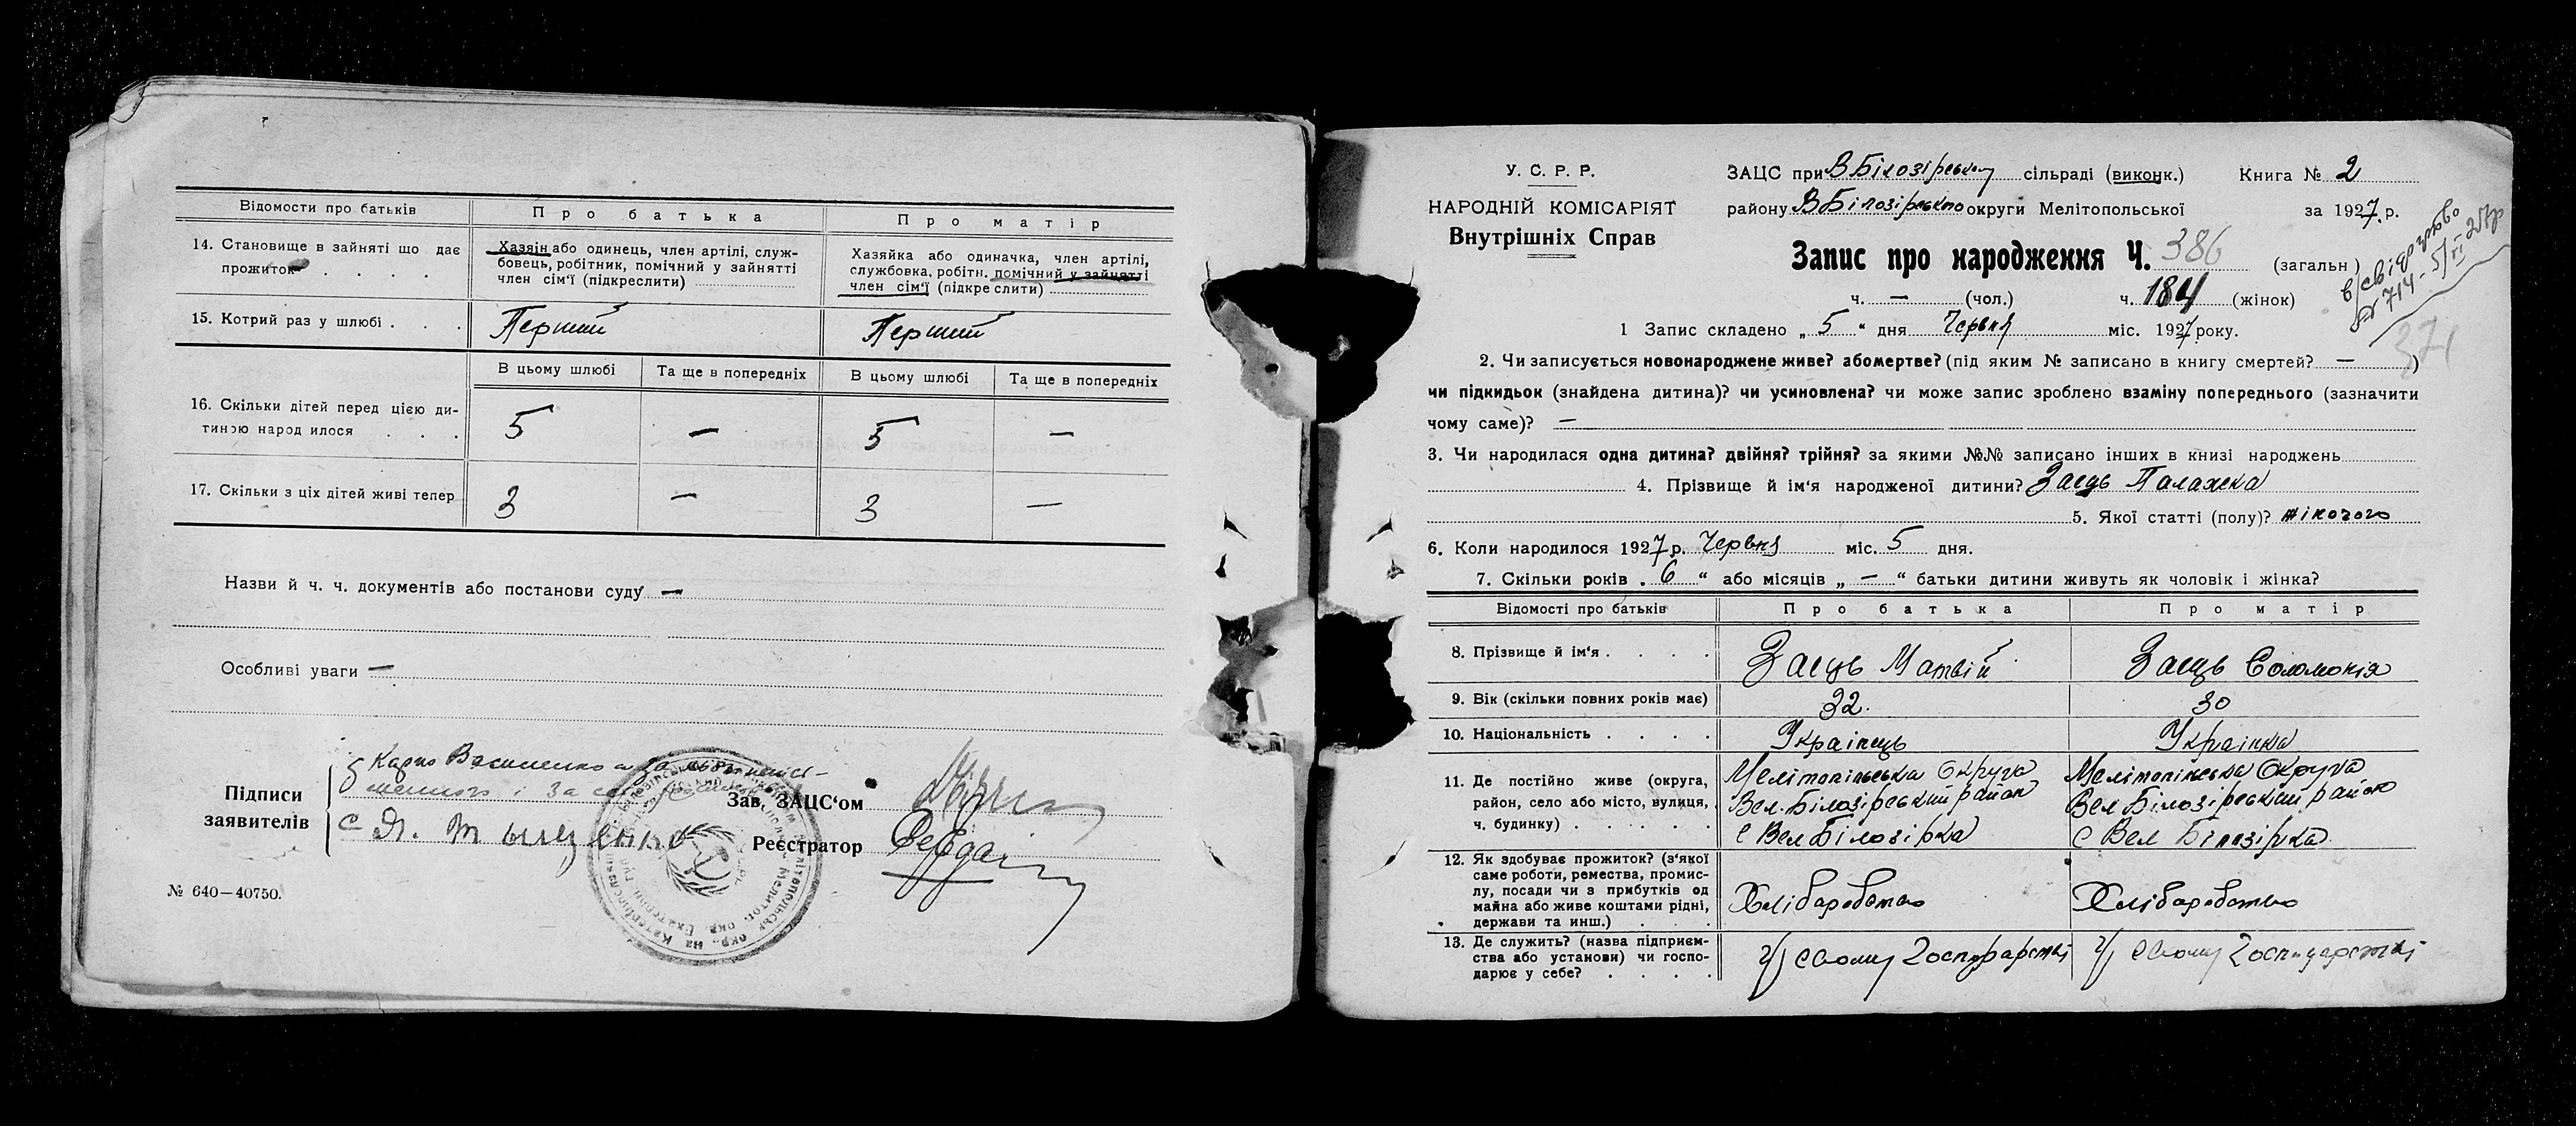 Відомости про батьків Про батька Про матір
14. Становище в зайняті що дає прожиток . . . .
Хазяін або одинець, член артілі, служ-
бовець, робітник, помічний у зайнятті
член сім'ї (підкреслити)
Хазяйка або одиначка, член артілі,
службовка, робітн. помічний у зайнятті
член сім'ї (підкреслити)
15. Котрий раз у шлюбі . . . Перший Перший
В цьому шлюбі Та ще в попередніх В цьому шлюбі Та ще в попередніх
16. Скільки дітей перед цією ди-
тиною народилося . . . 5 — 5 —
17. Скільки з ціх дітей живі тепер 3 — 3 —
Назви й ч. ч. документів або постанови суду —
Особливі уваги —
Підписи
заявителів
Карпо Василенко
Зав. ЗАЦС'ом
Реєстратор
№ 640—40750.
У. С. Р. Р.
НАРОДНІЙ КОМІСАРІЯТ
Внутрішніх Справ
ЗАЦС при ВБілозірському сільраді (виконк.) Книга № 2
району ВБілозірського округи Мелітопольської за 1927 р.
Запис про народження Ч. 386 (загальн)
ч. — (чол.) ч. 184 (жінок)
в/свідоцтво
№ 714 - 5/VI 27р
371
1 Запис складено „ 5 “ дня Червня міс. 1927 року.
2. Чи записується новонароджене живе? або мертве? (під яким № записано в книгу смертей? — )
чи підкидьок (знайдена дитина)? чи усиновлена? чи може запис зроблено взаміну попереднього (зазначити
чому саме)? —
3. Чи народилася одна дитина? двійня? трійня? за якими №№ записано інших в книзі народжень
4. Прізвище й ім'я народженої дитини? Заець Палажка
5. Якої статті (полу)? жіночого
6. Коли народилося 1927 р. Червня міс. 5 дня.
7. Скільки років „ 6 “ або місяців „ — “ батьки дитини живуть як чоловік і жінка?
Відомості про батьків Про батька Про матір
8. Прізвище й ім'я . . . . Заець Матвій Заець Соломонія
9. Вік (скільки повних років має) 32. 30
10. Національність . . . . Українець Українка
11. Де постійно живе (округа,
район, село або місто, вулиця,
ч. будинку) . . . . .
Мелітопільська Округа
Вел. Білозірський район
с Вел Білозірка
Мелітопільська Округа
Вел Білозірський район
с Вел Білозірка
12. Як здобуває прожиток? (з'якої
саме роботи, ремества, промис-
лу, посади чи з прибутків од
майна або живе коштами рідні,
держави та инш.) . . .
Хліборобство Хліборобство
13. Де служить? (назва підприєм-
ства або установи) чи госпо-
дарює у себе? . . . .
У своому господарстві У своому господарстві